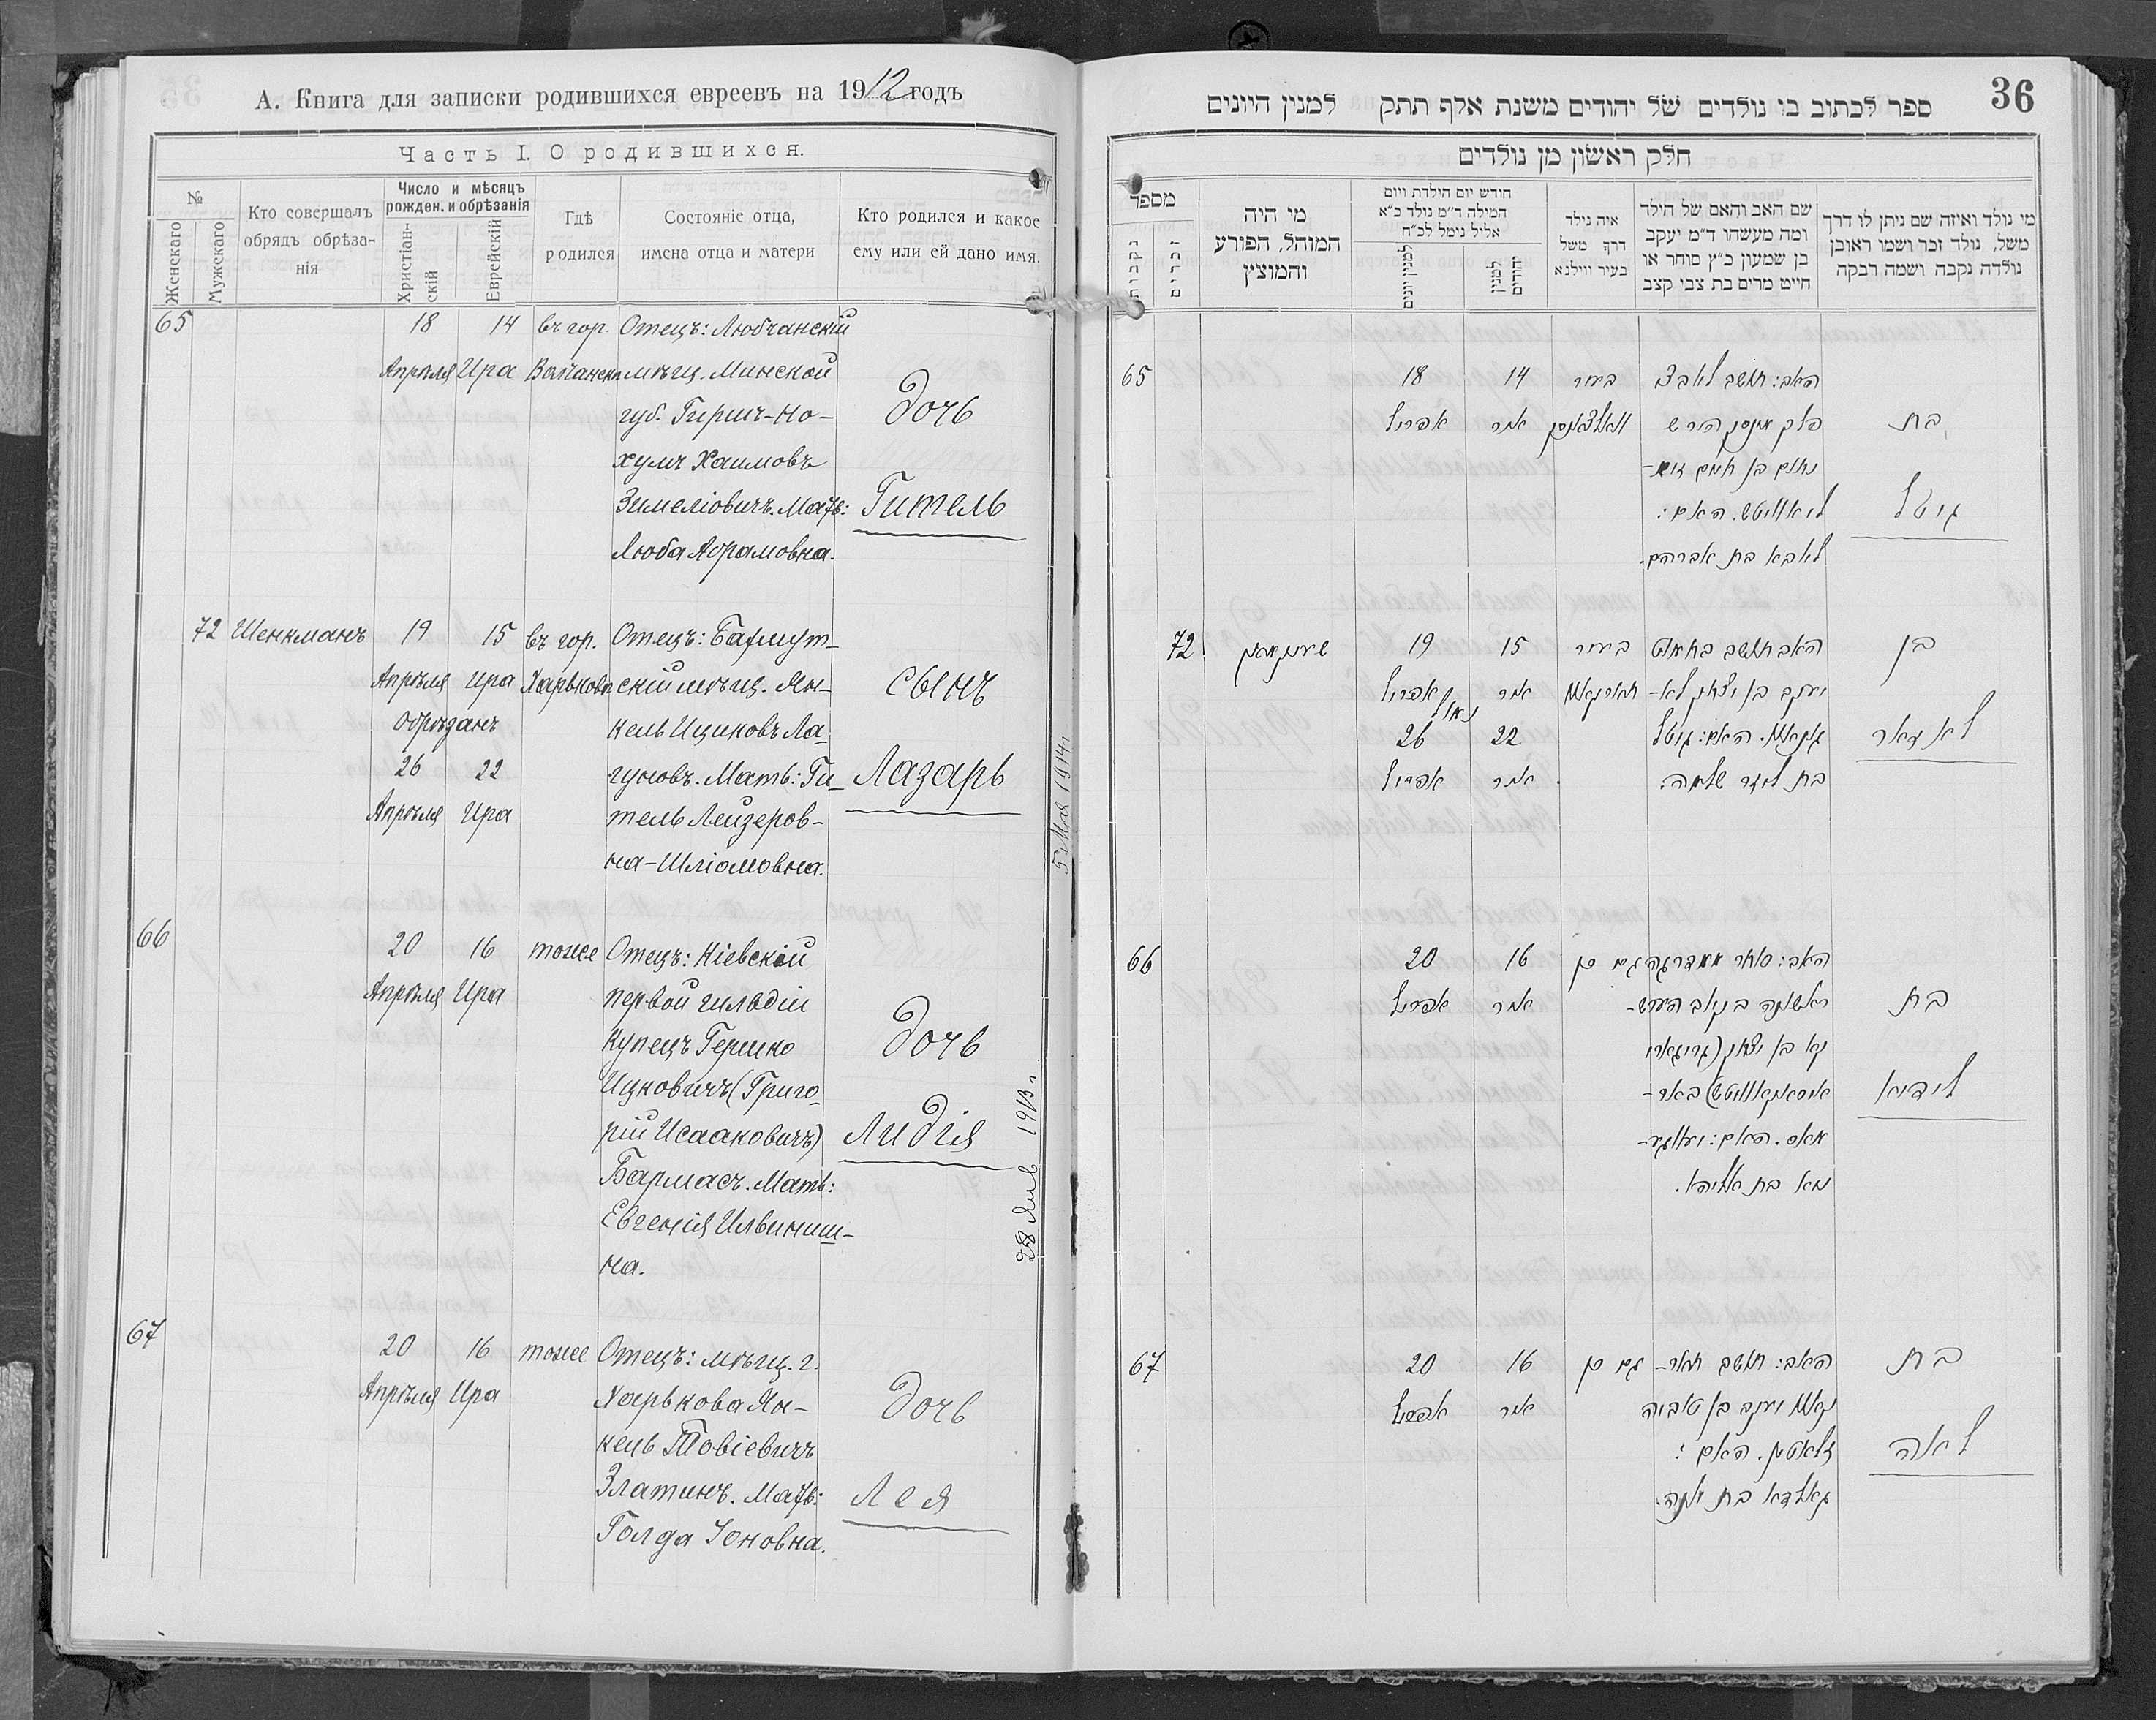 А. Книга для записки родившихся евреевъ на 1912 годъ
Часть I. О родившихся.
№
Женскаго
Мужскаго
Кто совершалъ
обрядъ обрѣза-
нія
Число и мѣсяцъ
рожден. и обрѣзанія
Христіан-
скій
Еврейскій
Гдѣ
родился
Состояніе отца,
имена отца и матери
Кто родился и какое
ему или ей дано имя.
65 18 14 въ гор. Отецъ: Любчанскій
Апрѣля Ира Волчанскѣ мѣщ. Минской
губ. Гирш-Но-
дочь
хумъ Хаимовъ
Зимеліовичъ. Мать:
Гитель
Люба Абрамовна.
72 Шенкманъ 19 15 въ гор. Отецъ: Бахмут-
Апрѣля Ира Харьковѣ скій мѣщ. Ян-
сынъ
Обрѣзанъ
кель Ициковъ Ла-
26 22
гуновъ. Мать: Ги-
Лазарь
Апрѣля Ира
тель Лейзеров-
на-Шліомовна.
5 Мая 1914 г
66 20 16 тоже Отецъ: Кіевскій
Апрѣля Ира первой гильдіи
купецъ Гершко
дочь
Ицковичъ (Григо-
рій Исааковичъ)
Лидія
Бармасъ. Мать:
Евгенія Ильинич-
на.
28 Янв. 1913 г
67 20 16 тоже Отецъ: мѣщ. г.
Апрѣля Ира Харькова Ян-
дочь
кель Товіевичъ
Златинъ. Мать:
Лея
Голда Іоновна.
36
ספר לכתוב בו נולדים של יהודים משנת אלף תתק למנין היונים
חלק ראשון מן נולדים
מספר
נקבות
זכרים
מי היה
המוהל, הפורע
והמוצץ
חודש יום הילדת ויום
המילה ד״מ נולד כ״א
אליל נימל לכ״ח
למנין יונים
למנין
יהודים
איה נילד
דרך משל
בעיר ווילנא
שם האב והאם של הילד
ומה מעשהו ד״מ יעקב
בן שמעון כ״ץ סוחר או
חייט מרים בת צבי קצב
מי נולד ואיזה שם ניתן לו דרך
משל, נולד זכר ושמו ראובן
נולדה נקבה ושמה רבקה
65 18 14 בעיר
אפריל אייר
פלך מינסק הירש
בת
נחום בן חיים
האם:
גיטל
ליובא בת אברהם.
72 שיינקמאן 19 15 בעיר
בן
אפריל אייר חארקאוו יעקב בן יצחק לא-
נימול
26 22
גונאוו. האם: גיטל
לאזאר
אפריל אייר
בת ליזר שלמה.
66 20 16 גם כן
אפריל אייר
בת
לידיא
67 20 16 גם כן האב: תושב חאר-
בת
אפריל אייר
קאוו יעקב בן טוביה
זלאטין. האם:
לאה
גאלדא בת יונה.